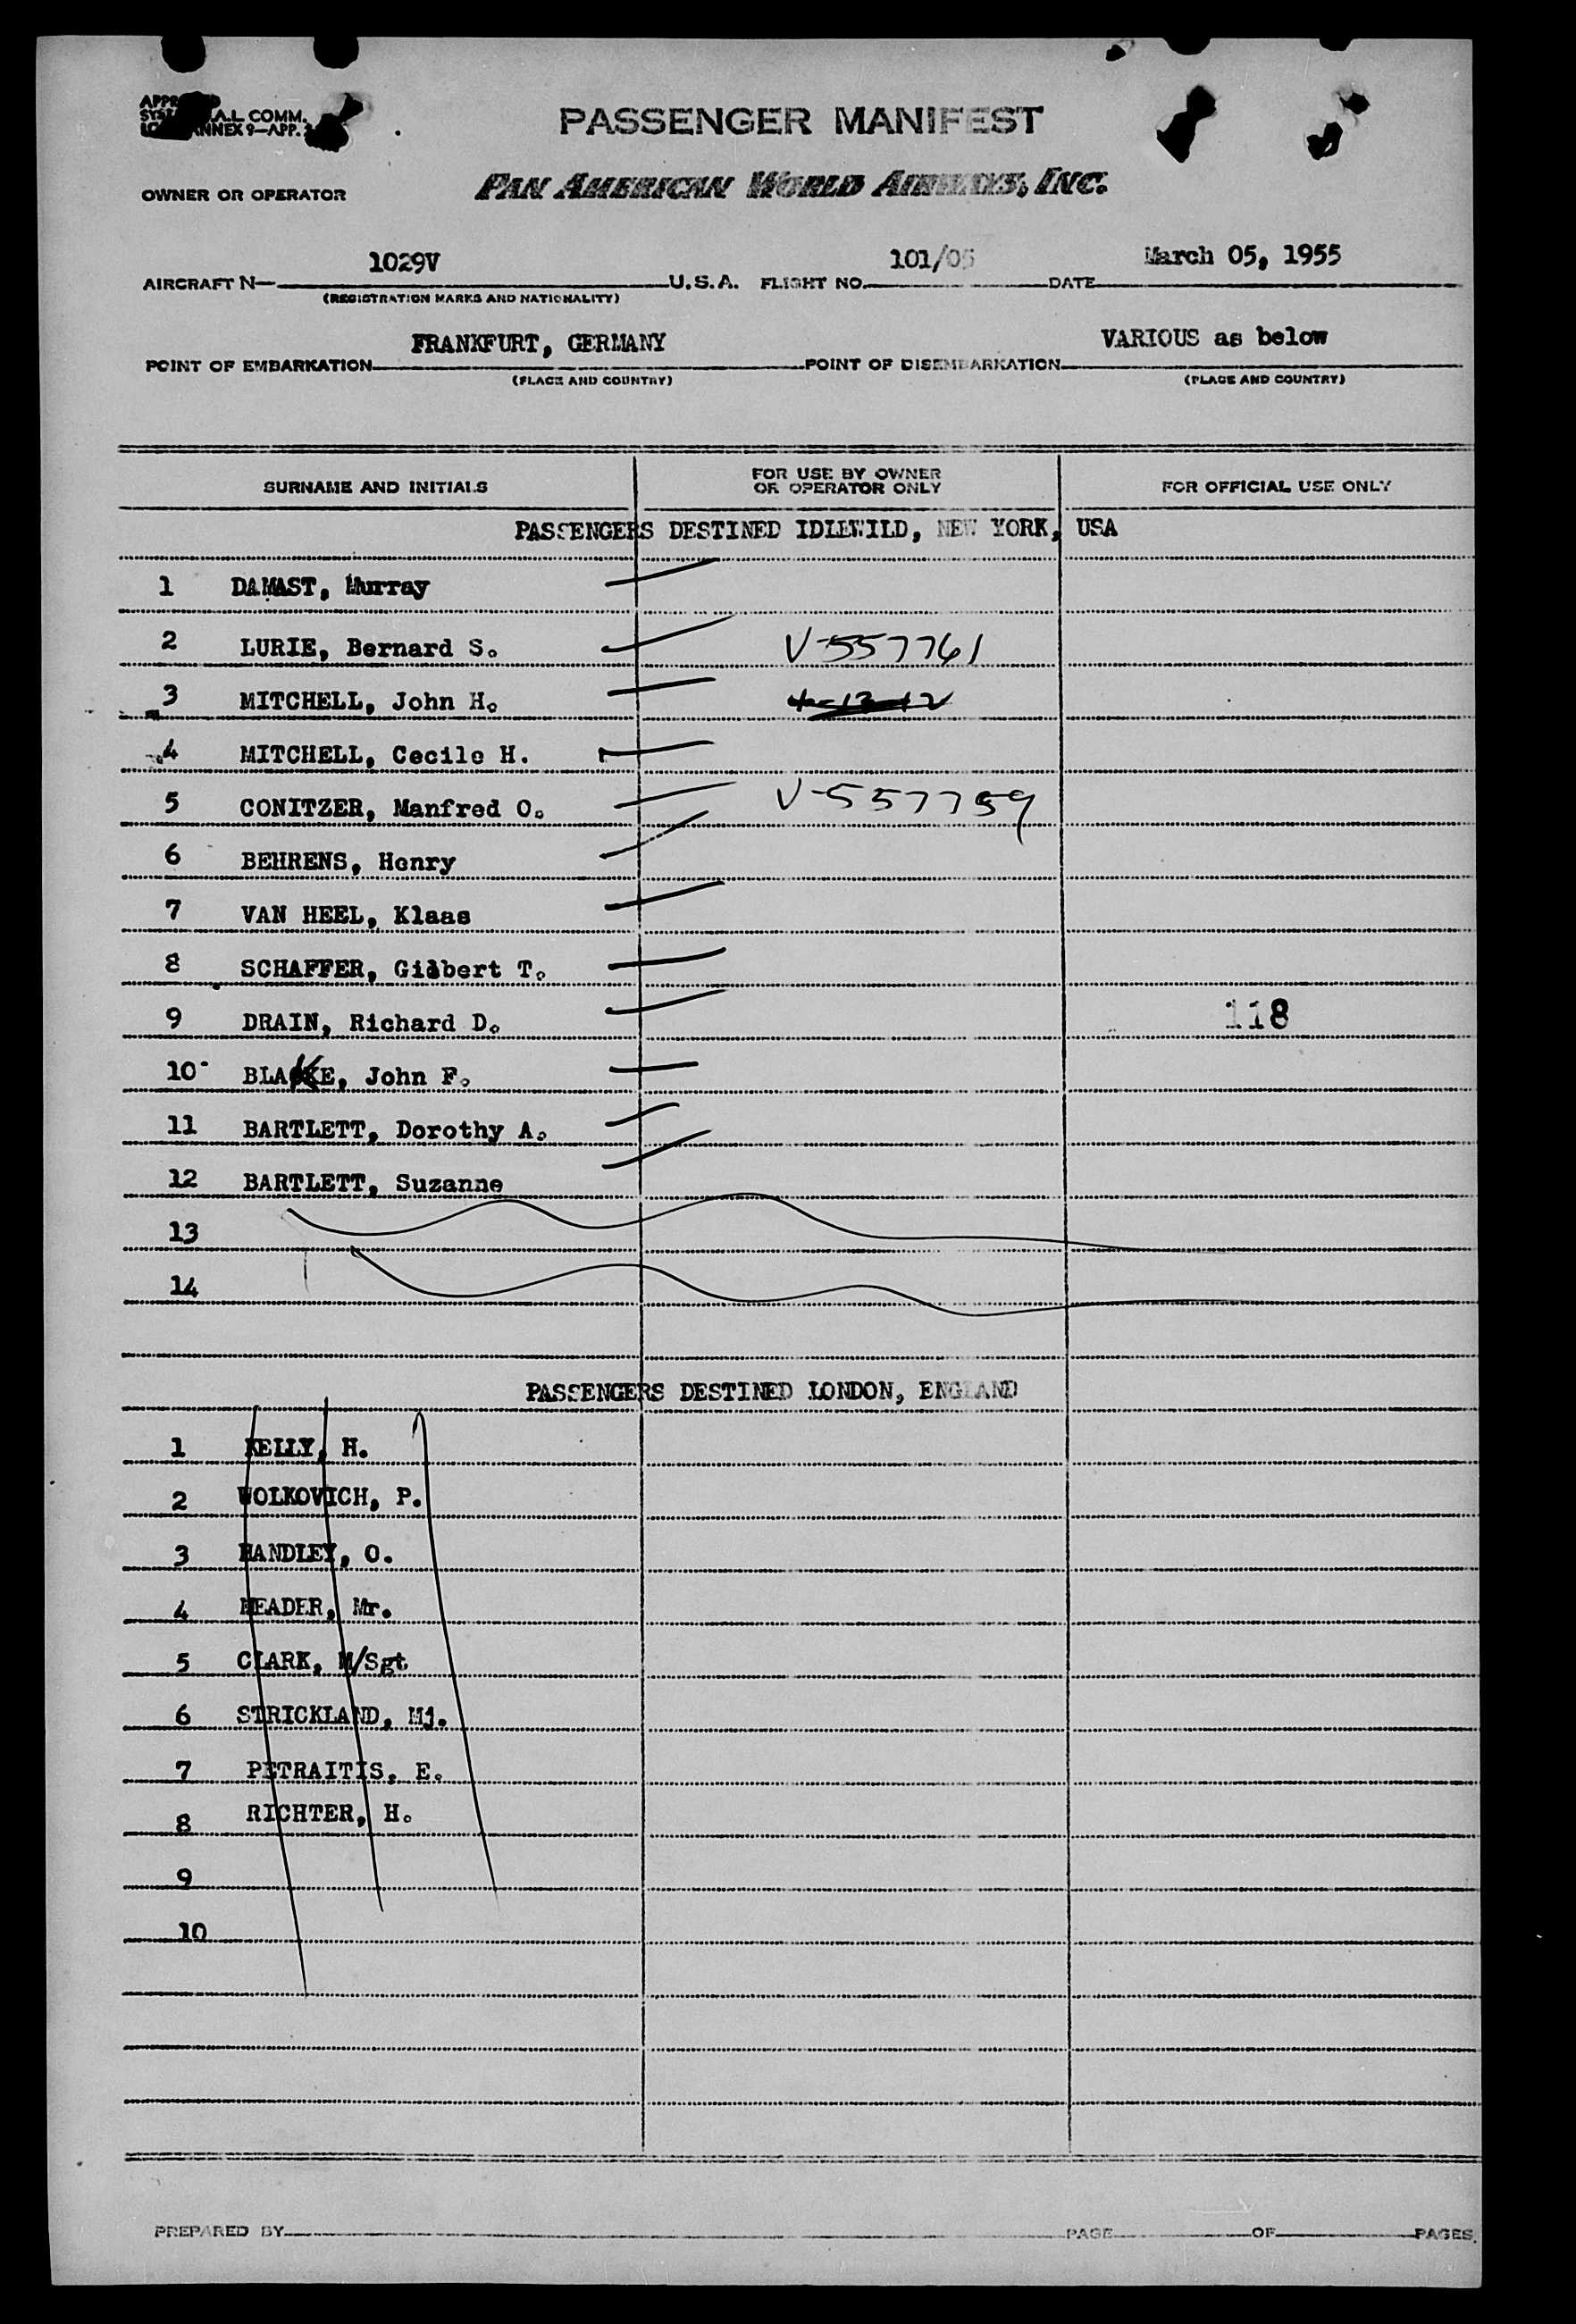 PASSENGER MANIFEST
A.L. COMM.
ANNEX 9—APP.
OWNER OR OPERATOR PAN AMERICAN WORLD AIRWAYS, INC.
1029V 101/05 March 05, 1955
AIRCRAFT N— U.S.A. FLIGHT NO. DATE
(REGISTRATION MARKS AND NATIONALITY)
FRANKFURT, GERMANY VARIOUS as below
POINT OF EMBARKATION POINT OF DISEMBARKATION
(PLACE AND COUNTRY) (PLACE AND COUNTRY)
SURNAME AND INITIALS FOR USE BY OWNER OR OPERATOR ONLY FOR OFFICIAL USE ONLY
PASSENGERS DESTINED IDLEWILD, NEW YORK, USA
1 DAMAST, Murray
2 LURIE, Bernard S. V-557761
3 MITCHELL, John H.
4 MITCHELL, Cecile H.
5 CONITZER, Manfred O. V-557759
6 BEHRENS, Henry
7 VAN HEEL, Klaas
8 SCHAFFER, Gilbert T.
9 DRAIN, Richard D. 118
10 BLAKE, John F.
11 BARTLETT, Dorothy A.
12 BARTLETT, Suzanne
13
14
PASSENGERS DESTINED LONDON, ENGLAND
1 KELLY, H.
2 WOLKOVICH, P.
3 HANDLEY, O.
4 MEADER, Mr.
5 CLARK, M/Sgt
6 STRICKLAND, Mj.
7 PETRAITIS, E.
8 RICHTER, H.
9
10
PREPARED BY PAGE OF PAGES